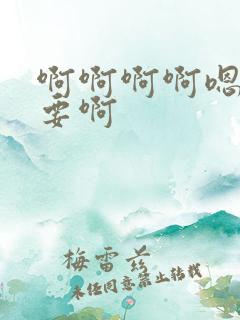 啊啊啊啊嗯
要啊
梅雷兹
未经同意禁止转载